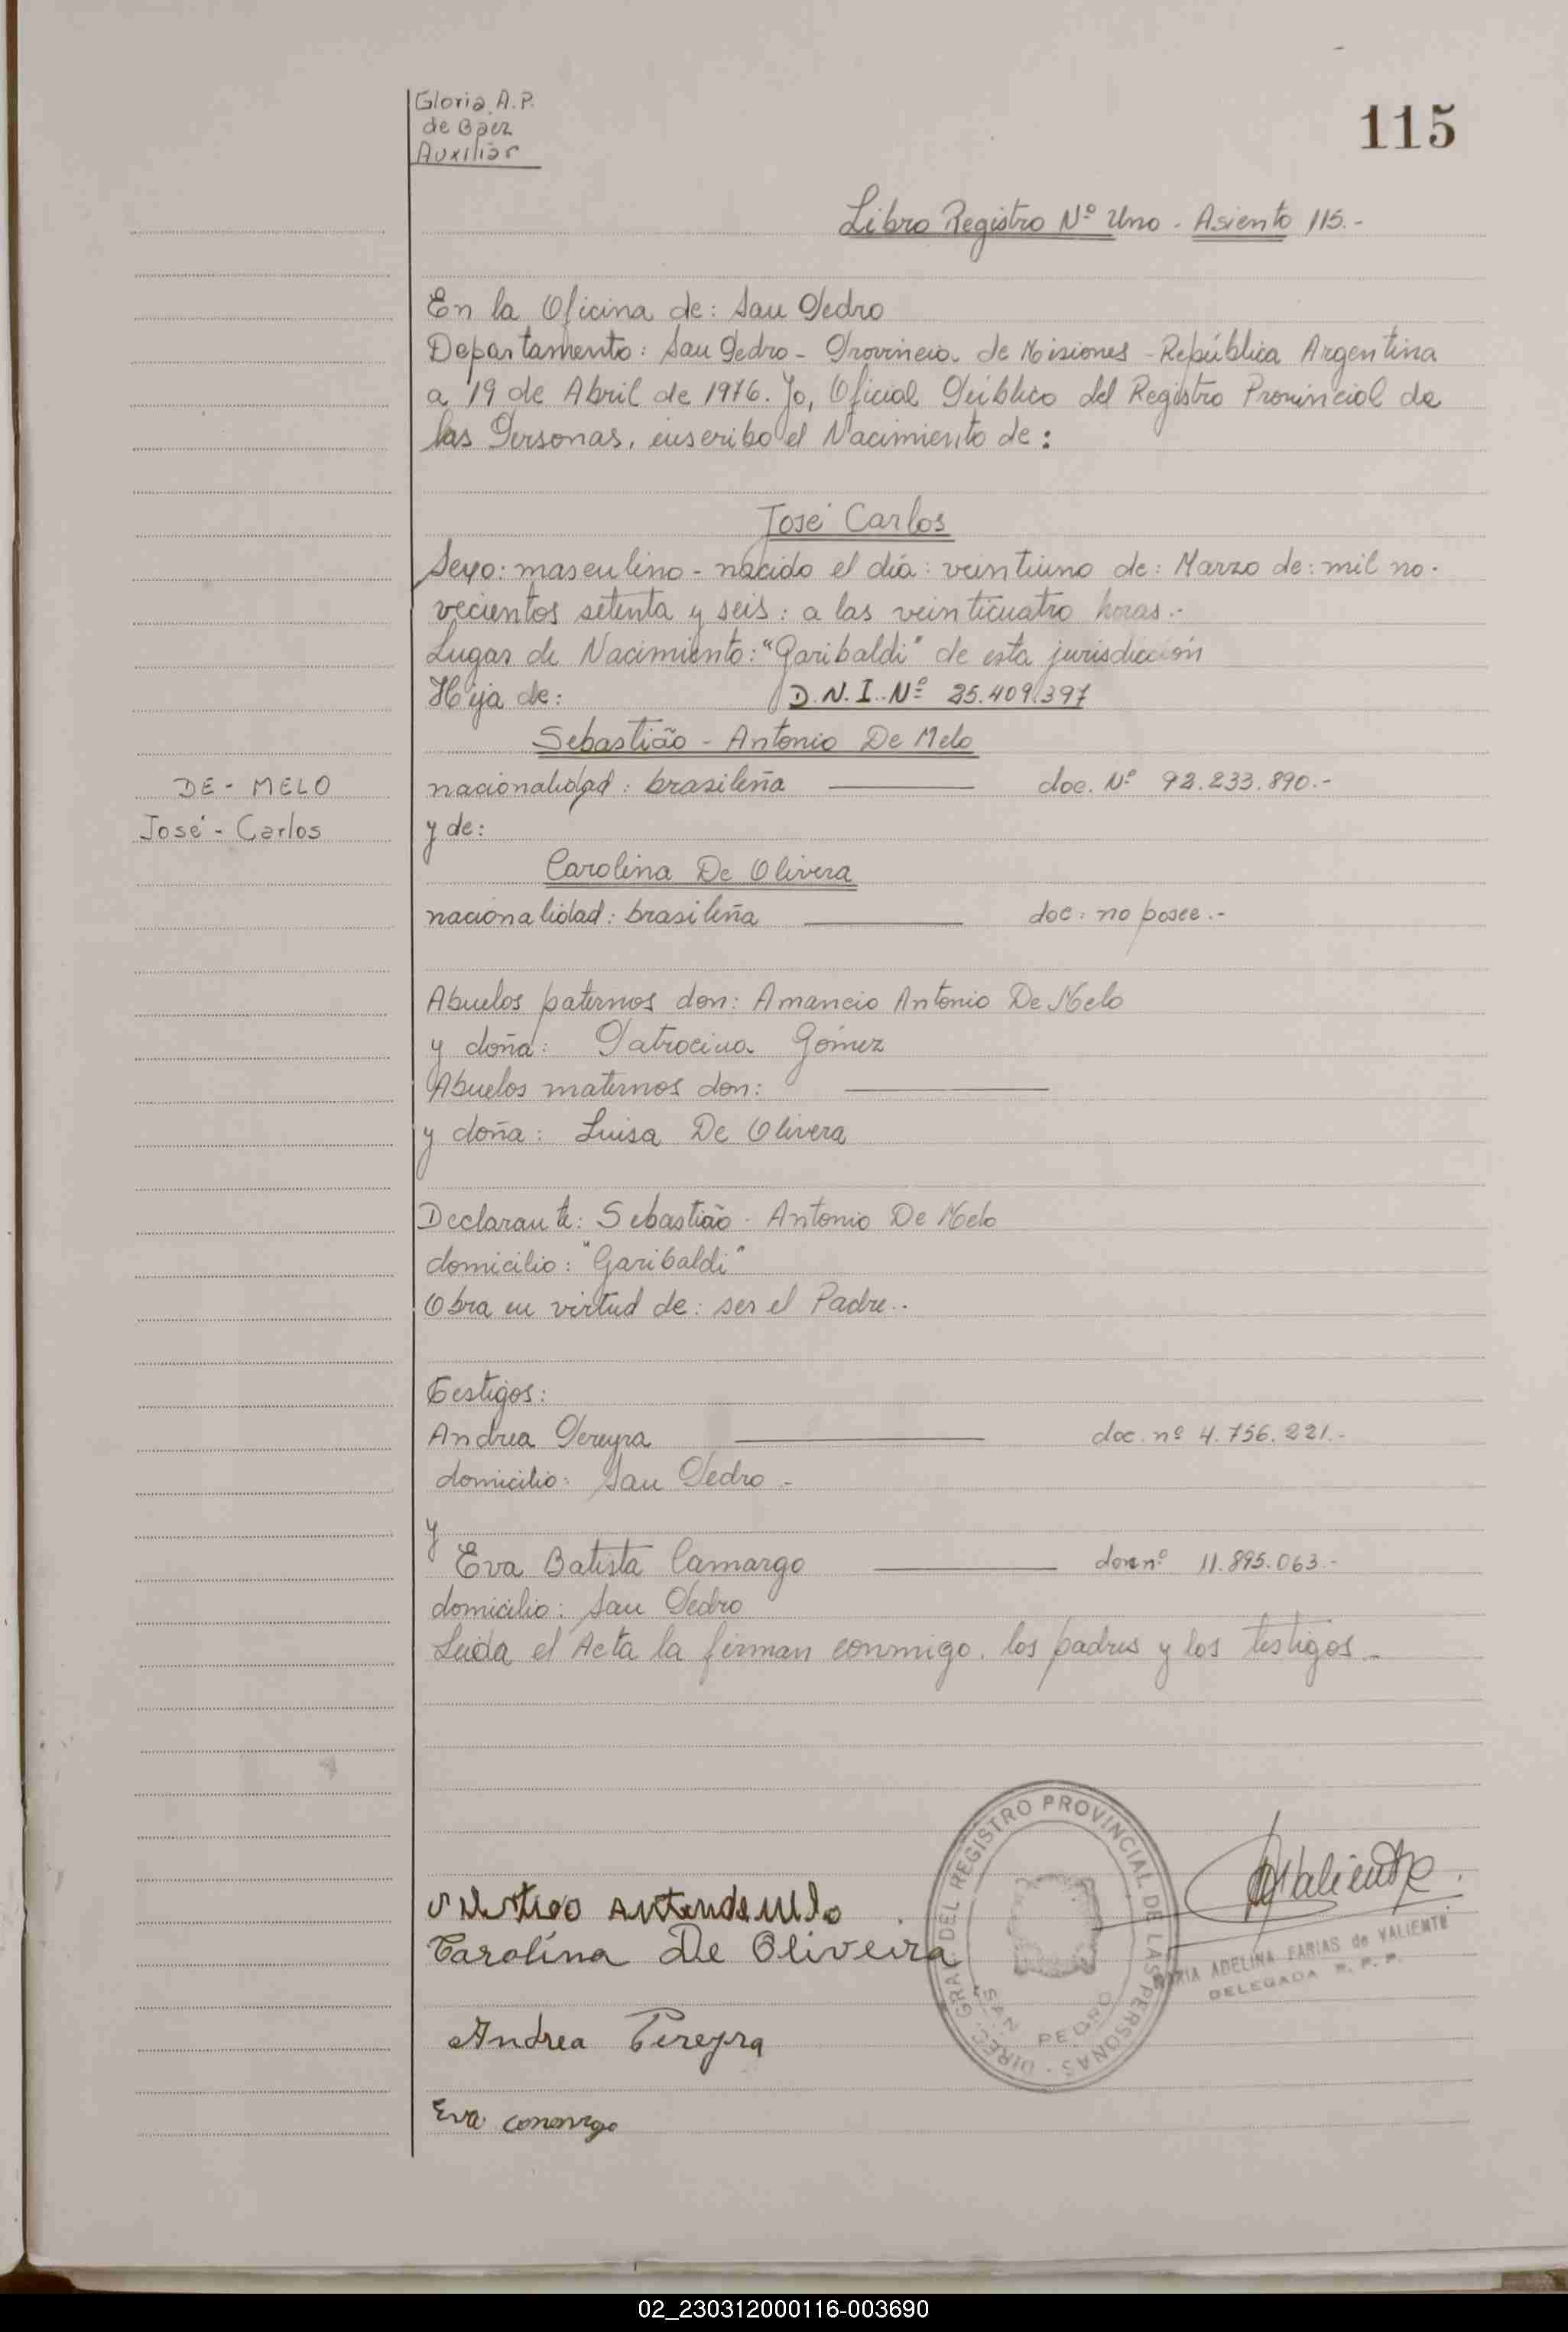 Gloria A.P.
de Baez
Auxiliar
115
Libro Registro Nº Uno - Asiento 115.-
En la Oficina de: San Pedro
Departamento: San Pedro - Provincia de Misiones - República Argentina
a 19 de Abril de 1976. Yo, Oficial Público del Registro Provincial de
las Personas, inscribo el Nacimiento de:
José Carlos
Sexo: masculino - nacido el día: veintiuno de: Marzo de: mil no-
vecientos setenta y seis: a las veinticuatro horas.-
Lugar de Nacimiento: "Garibaldi" de esta jurisdicción
Hijo de: D.N.I. Nº 25.409.397
Sebastião - Antonio De Melo
DE - MELO
nacionalidad: brasileña doc. Nº 92.233.890.-
José - Carlos
y de:
Carolina De Olivera
nacionalidad: brasileña doc: no posee.-
Abuelos paternos don: Amancio Antonio De Melo
y doña: Patrocina Gómez
Abuelos maternos don:
y doña: Luisa De Olivera
Declarante: Sebastião - Antonio De Melo
domicilio: "Garibaldi"
Obra en virtud de: ser el Padre..
Testigos:
Andrea Pereyra doc. nº 4.756.221.-
domicilio: San Pedro -
y
Eva Batista Camargo doc nº 11.895.063.-
domicilio: San Pedro
Leida el Acta la firman conmigo, los padres y los testigos.-
DIREC. GRAL. DEL REGISTRO PROVINCIAL DE LAS PERSONAS
SAN PEDRO
Valiente
MARIA ADELINA FARIAS de VALIENTE
DELEGADA R. P. P.
Carolina De Oliveira
Andrea Pereyra
Eva
02_230312000116-003690